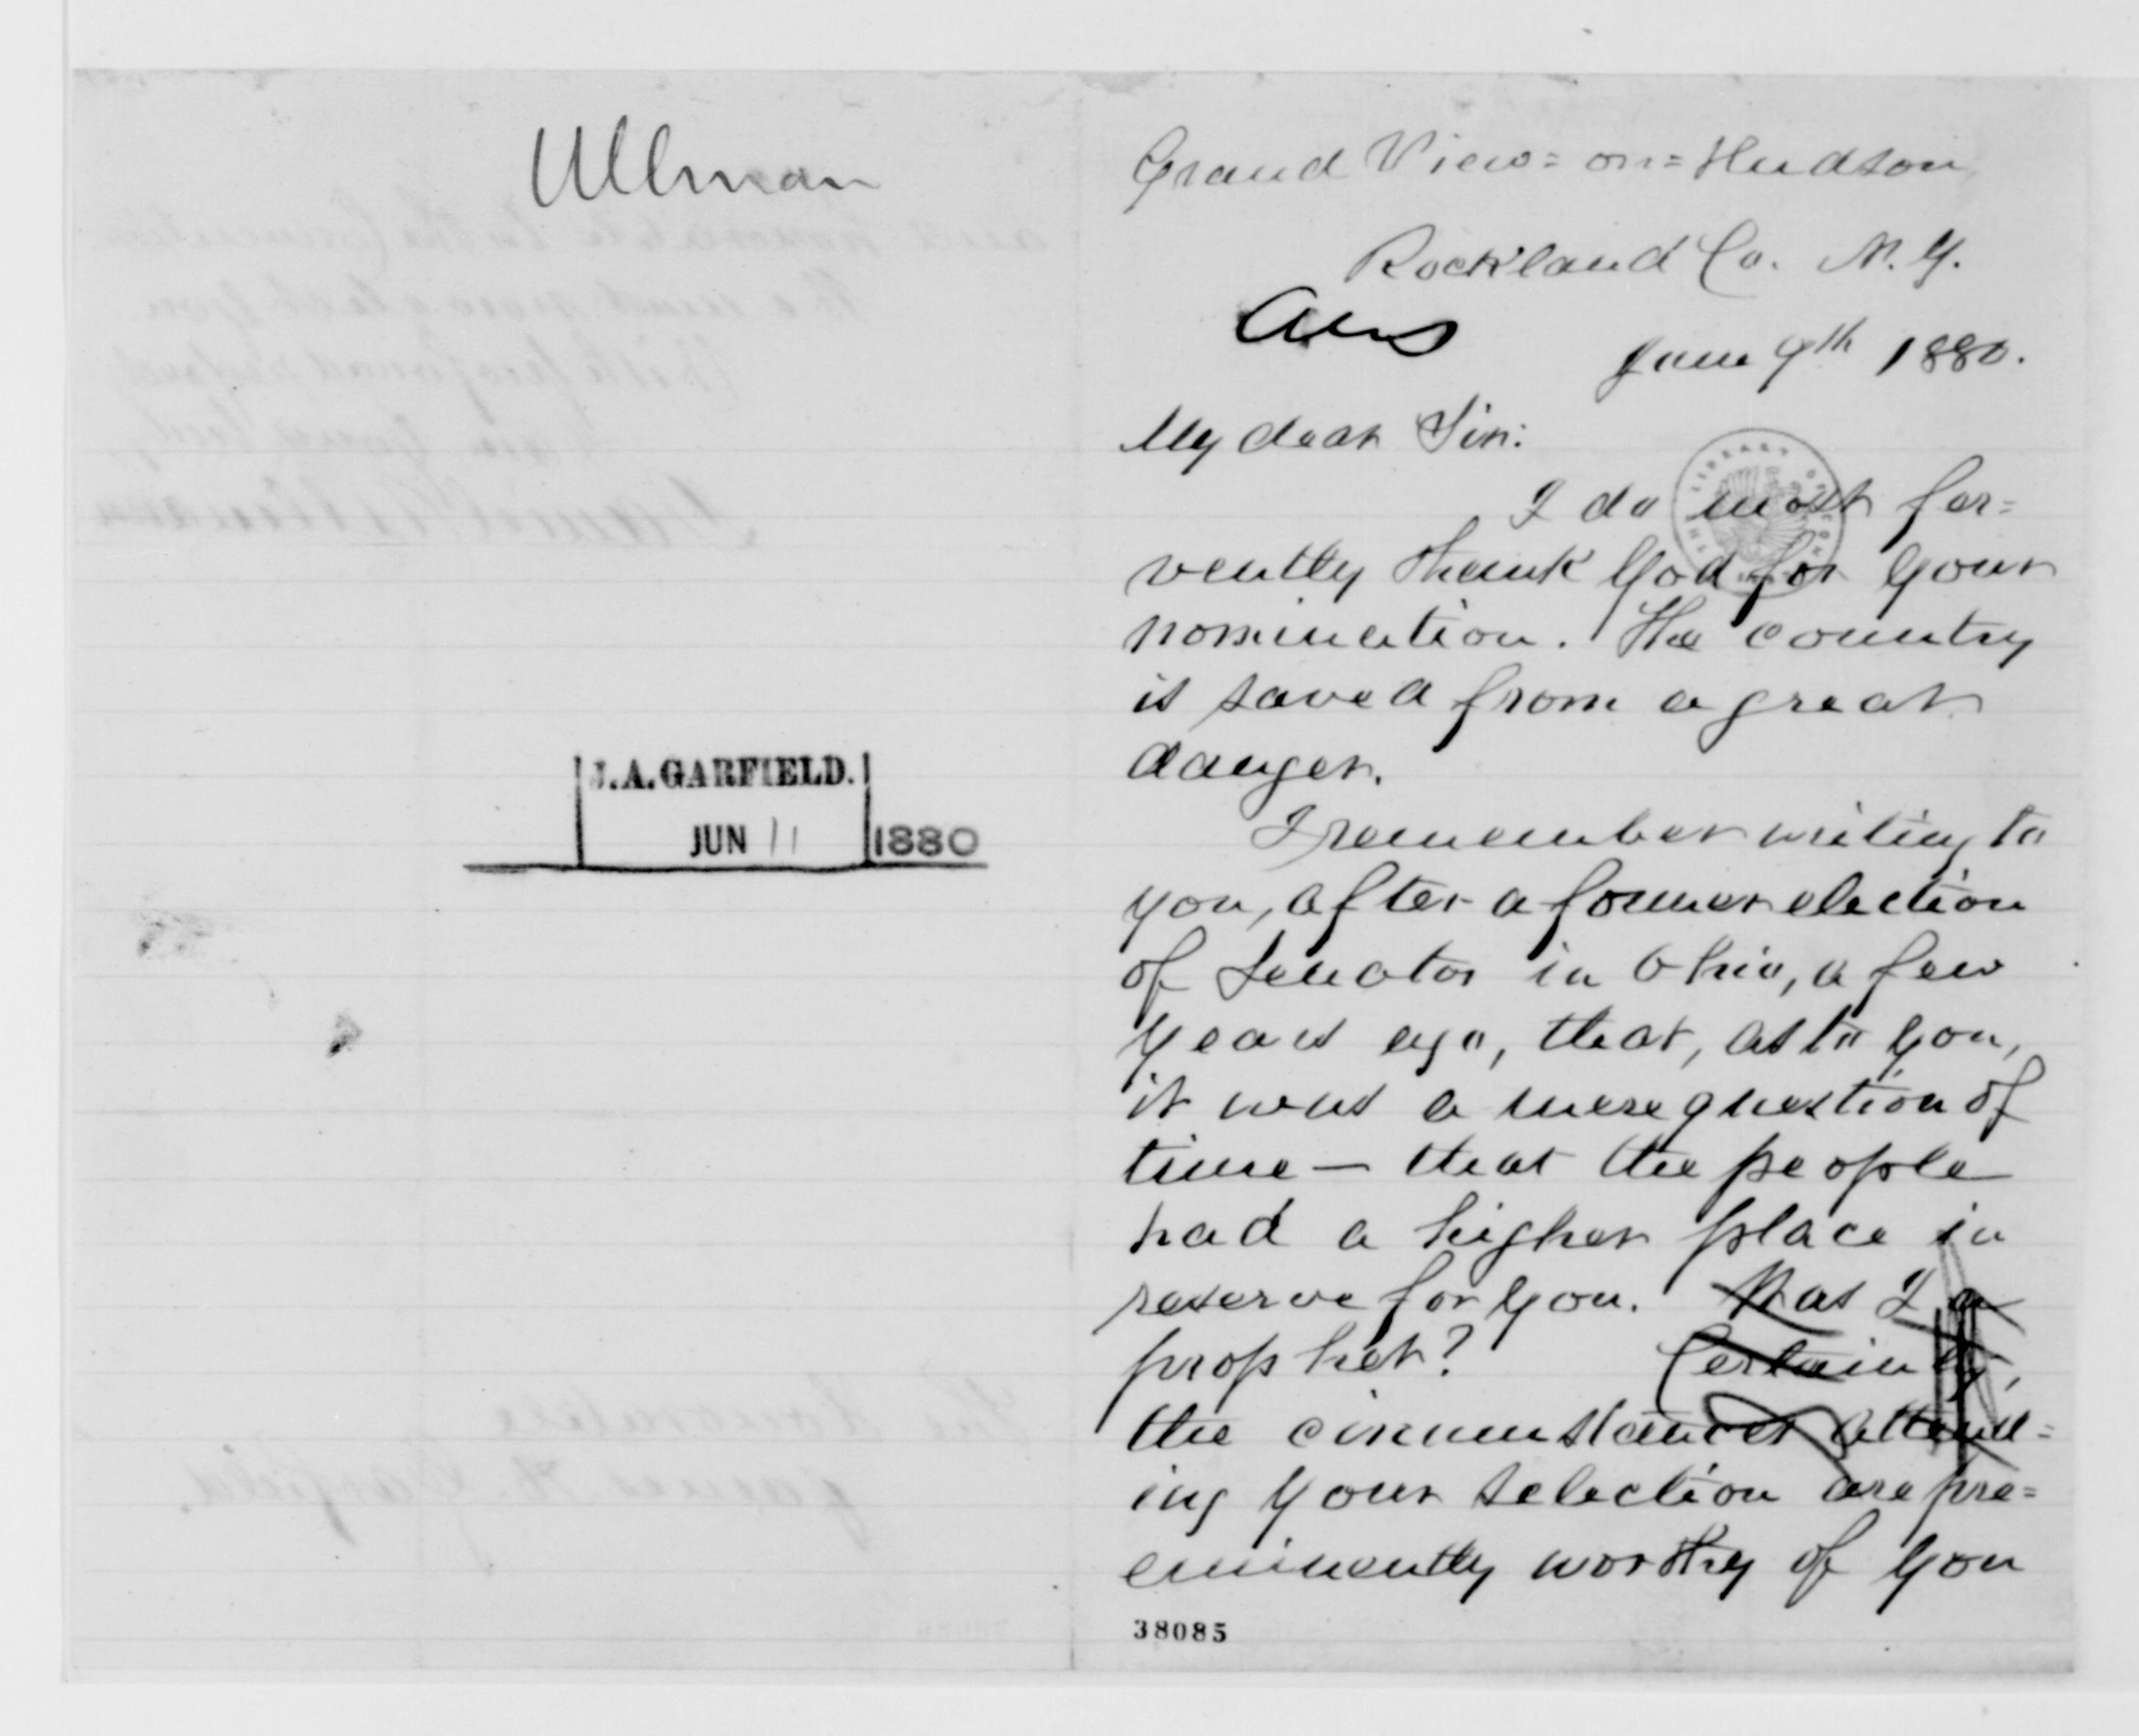 Ullman
J.A.GARFIELD.
JUN 11 1880
Grand View=on=Hudson
Rockland Co. N.Y.
Ans
June 9th 1880.
My dear Sir:
I do most fer=
vently thank God for your
nomination. The country
is saved from a great
danger.
I remember writing to
you, after a former election
of Senator in Ohio, a few
years ago, that, as to you,
it was a mere question of
time — that the people
had a higher place in
reserve for you. Was I a
prophet? Certainly,
the circumstances attend=
ing your selection are pre=
eminently worthy of you
38085